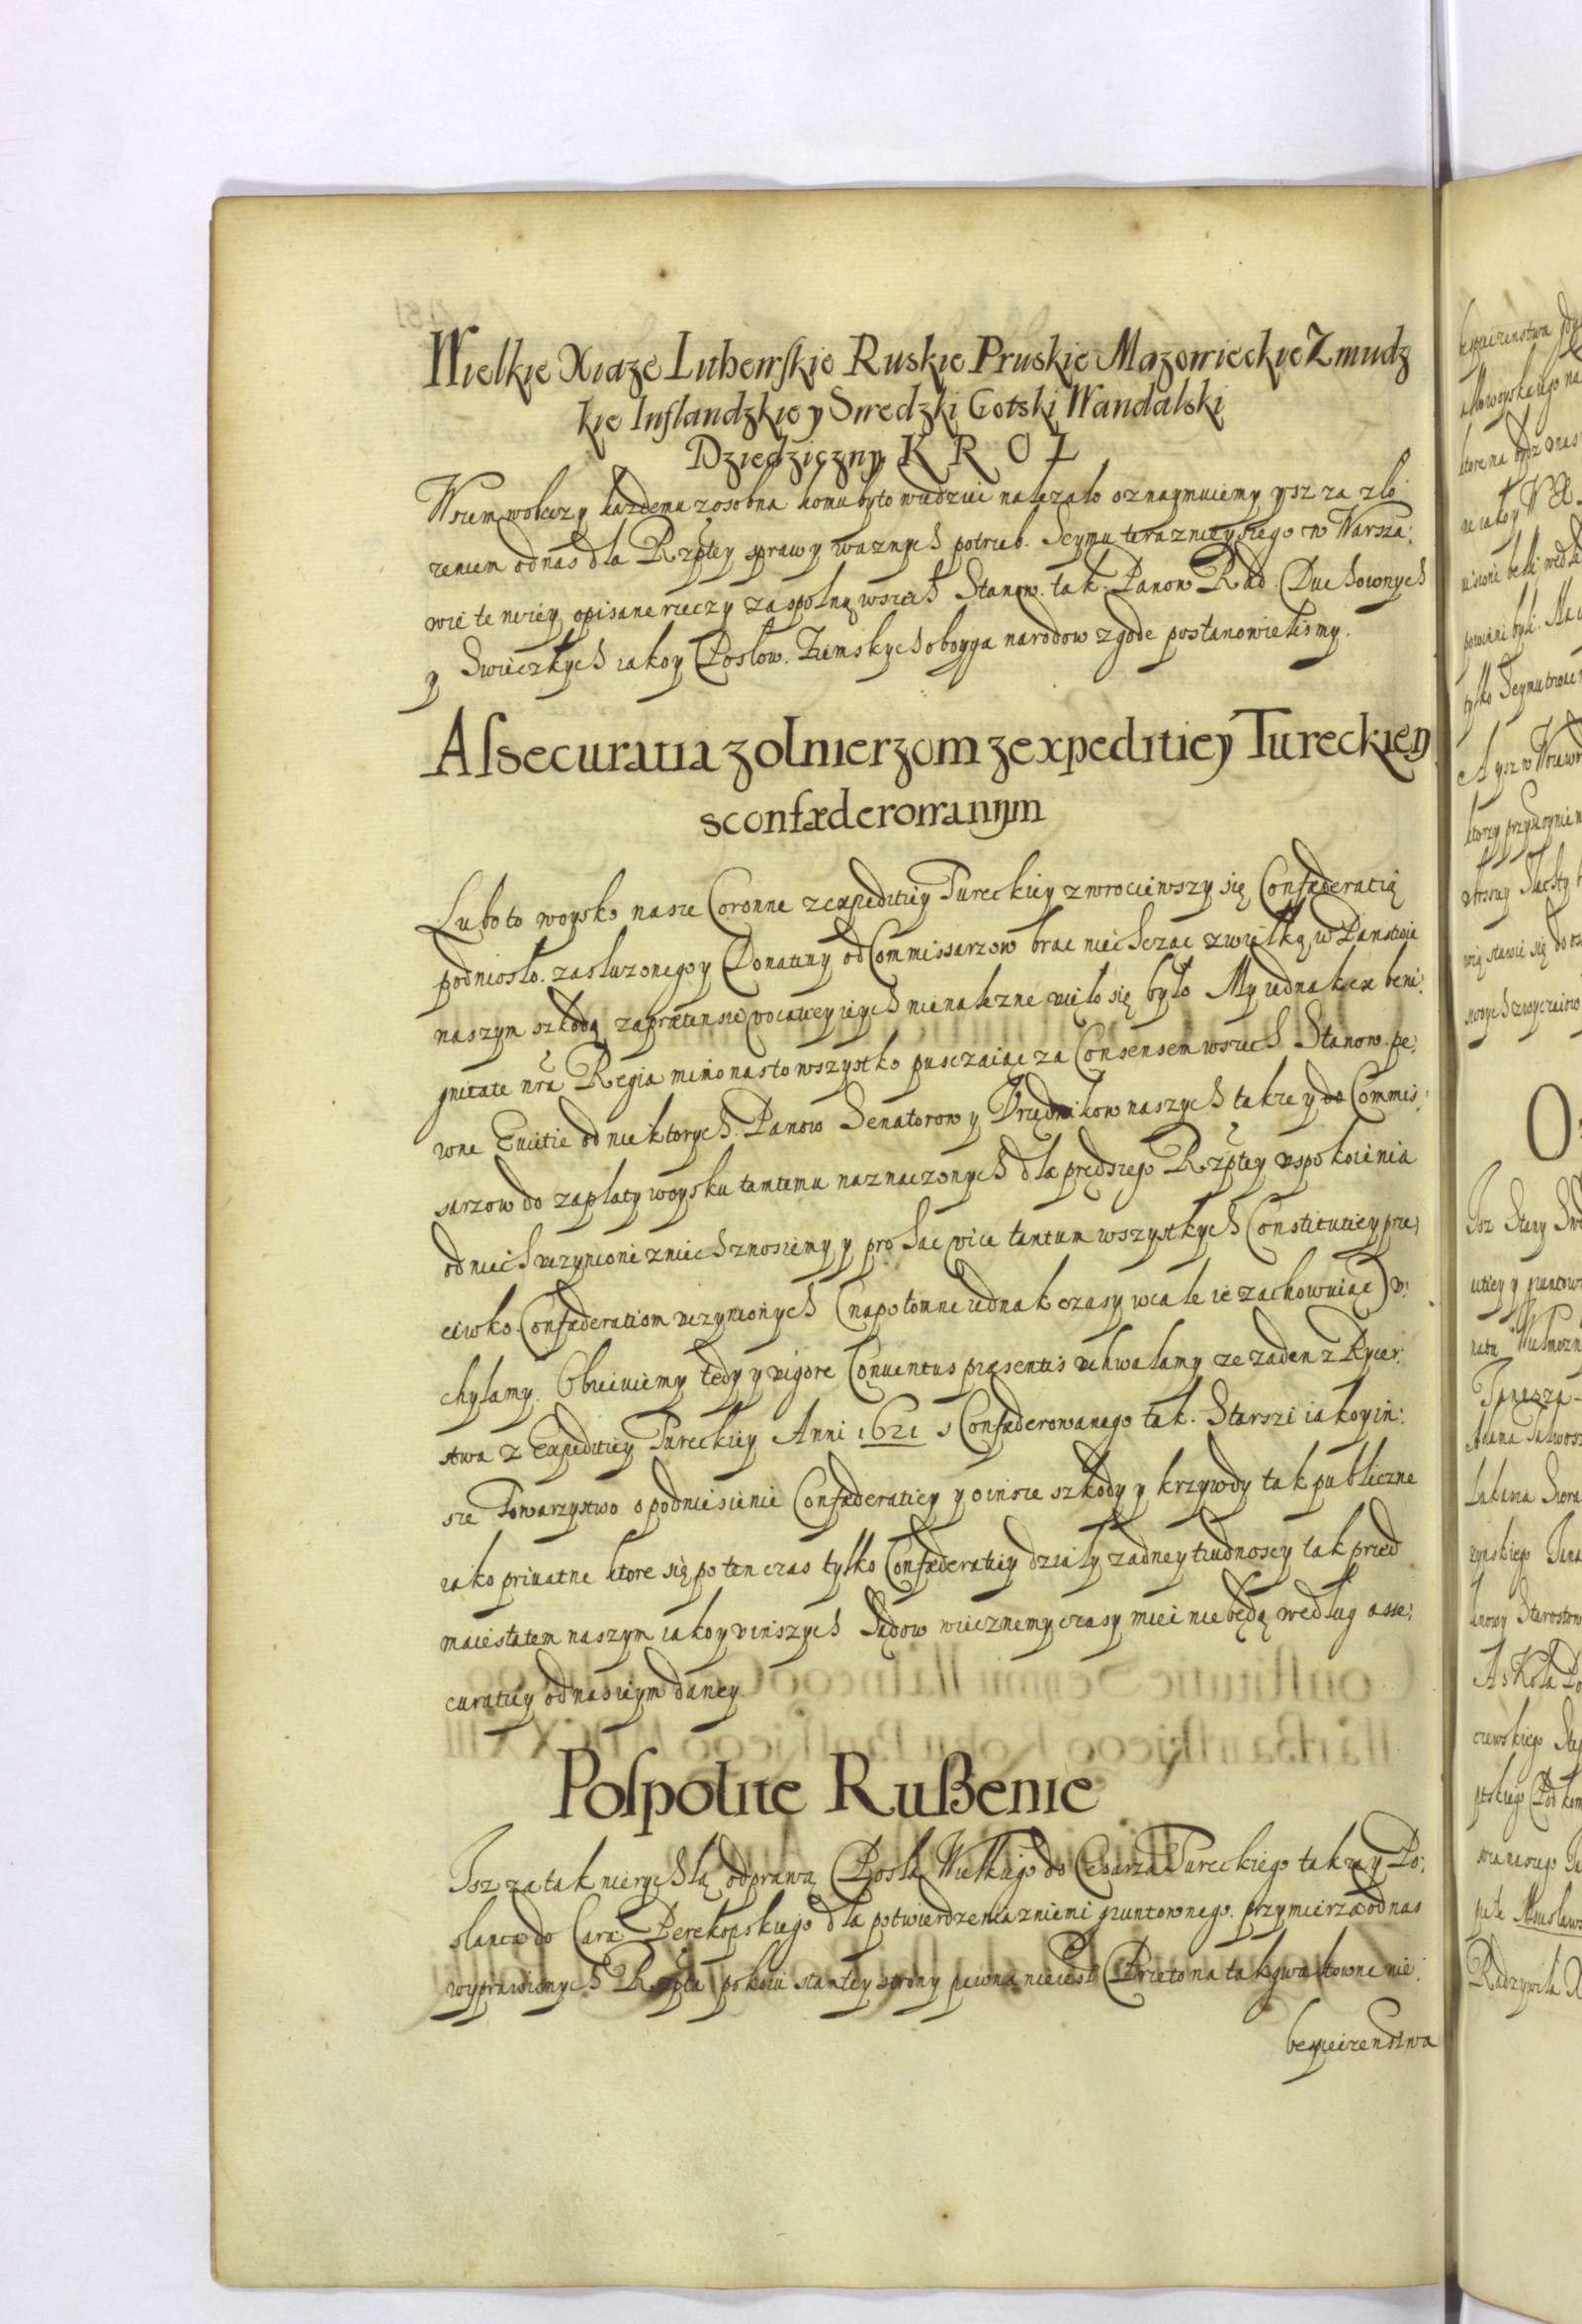 Wielkie Xiaze Lithewskie Ruskie Pruskie Mazowieckie Zmudz
kie Inflandzkie y Swedzki Gotski Wandalski
Dziedziczny K R O L
Wszem wobecz y kazdemu zosobna komu by to wiedziec nalezało oznaymuiemy ysz za zło
zeniem od nas dla Rzptey sprawy waznych potrzeb. Seymu teraznieyszego w Warsza:
wie te nizey opisane rzeczy zaspolną wszech Stanow. tak. Panow Rad. Duchownych
y Swieczkych iako y Posłow. Ziemskych oboyga narodow zgode postanowielismy.
Assecuratia zolnierzom z expeditiey Tureckiey
sconfæderowanym
Lubo to woysko nasze Coronne z expeditiey Tureckiey zwrociewszy się Confæderatią
podniosło. zasłuzonego y Donatiwy od Commissarzow brac niechczac zwielką w Panstwie
naszym szkodą za prætensie vocatiey ieych nienalezne wieło się było My iednak ex beni:
gnitate nrã Regia mimo nas to wszystko pusczaiąc za Consensem wszech Stanow. pe:
wne Euictie od niektorych. Panow Senatorow y Vrzędnikow naszych takze y do Commis:
sarzow do zapłaty woysku tamtemu naznaczonych dla prędszego Rzptey vspokoienia
od niech vczynione zniech znosiemy y pro hac vice tantum wszystkych Constitutiey prze:
ciwko. Confæderatiom vczynionych (napotomne iednak czasy wcale ie zachowuiac) v:
chylamy. Obieciuiemy tedy y vigore Conuentus præsentis vchwalamy ze zaden z Rycer:
stwa z Expeditiey Tureckiey Anni 1621 sConfæderowanego tak. Starszi iako y in:
sze Towarzystwo o podniesienie Confæderatiey y o insze szkody y krzywdy tak publiczne
iako priuatne ktore się po ten czas tylko Confæderatiey działy zadney trudnoscy tak przed
maiestatem naszym iako y vinszych Sądow wiecznemy czasy miec nie będą według asse:
curatiey od nas ieym daney.
Pospolite Rußenie
Isz za tak nierychłą odprawą Posła Wielkiego do Cesarza Tureckiego takze y Po:
slanca do Cara Perekopskiego dla potwierdzenia zniemi gruntownego. przymierza od nas
wyprawionych Rzpta pokoiu stamtey strony pewna nie iest Przeto na tak gwałtowne nie:
bespieczenstwa